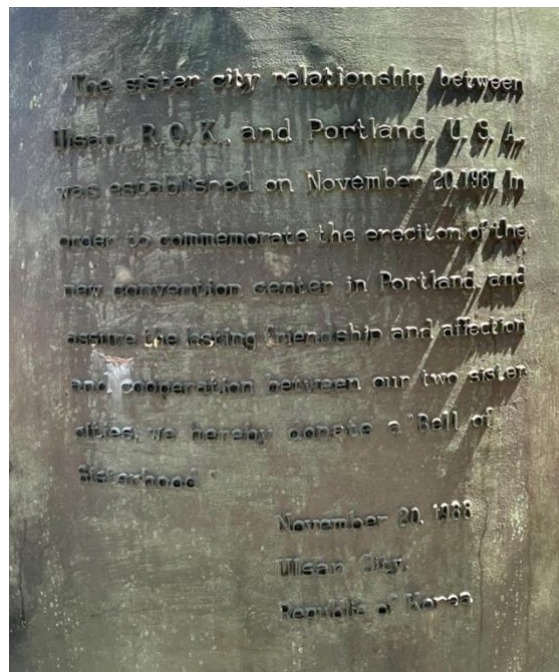 The sister city relationship between
Ulsan, R.O.K., and Portland, U.S.A.,
was established on November 20, 1987. In
order to commemorate the erection of the
new convention center in Portland and
assure the lasting friendship and affection
and cooperation between our two sister
cities, we hereby donate a "Bell of
Sisterhood"
November 20, 1988
Ulsan City,
Republic of Korea